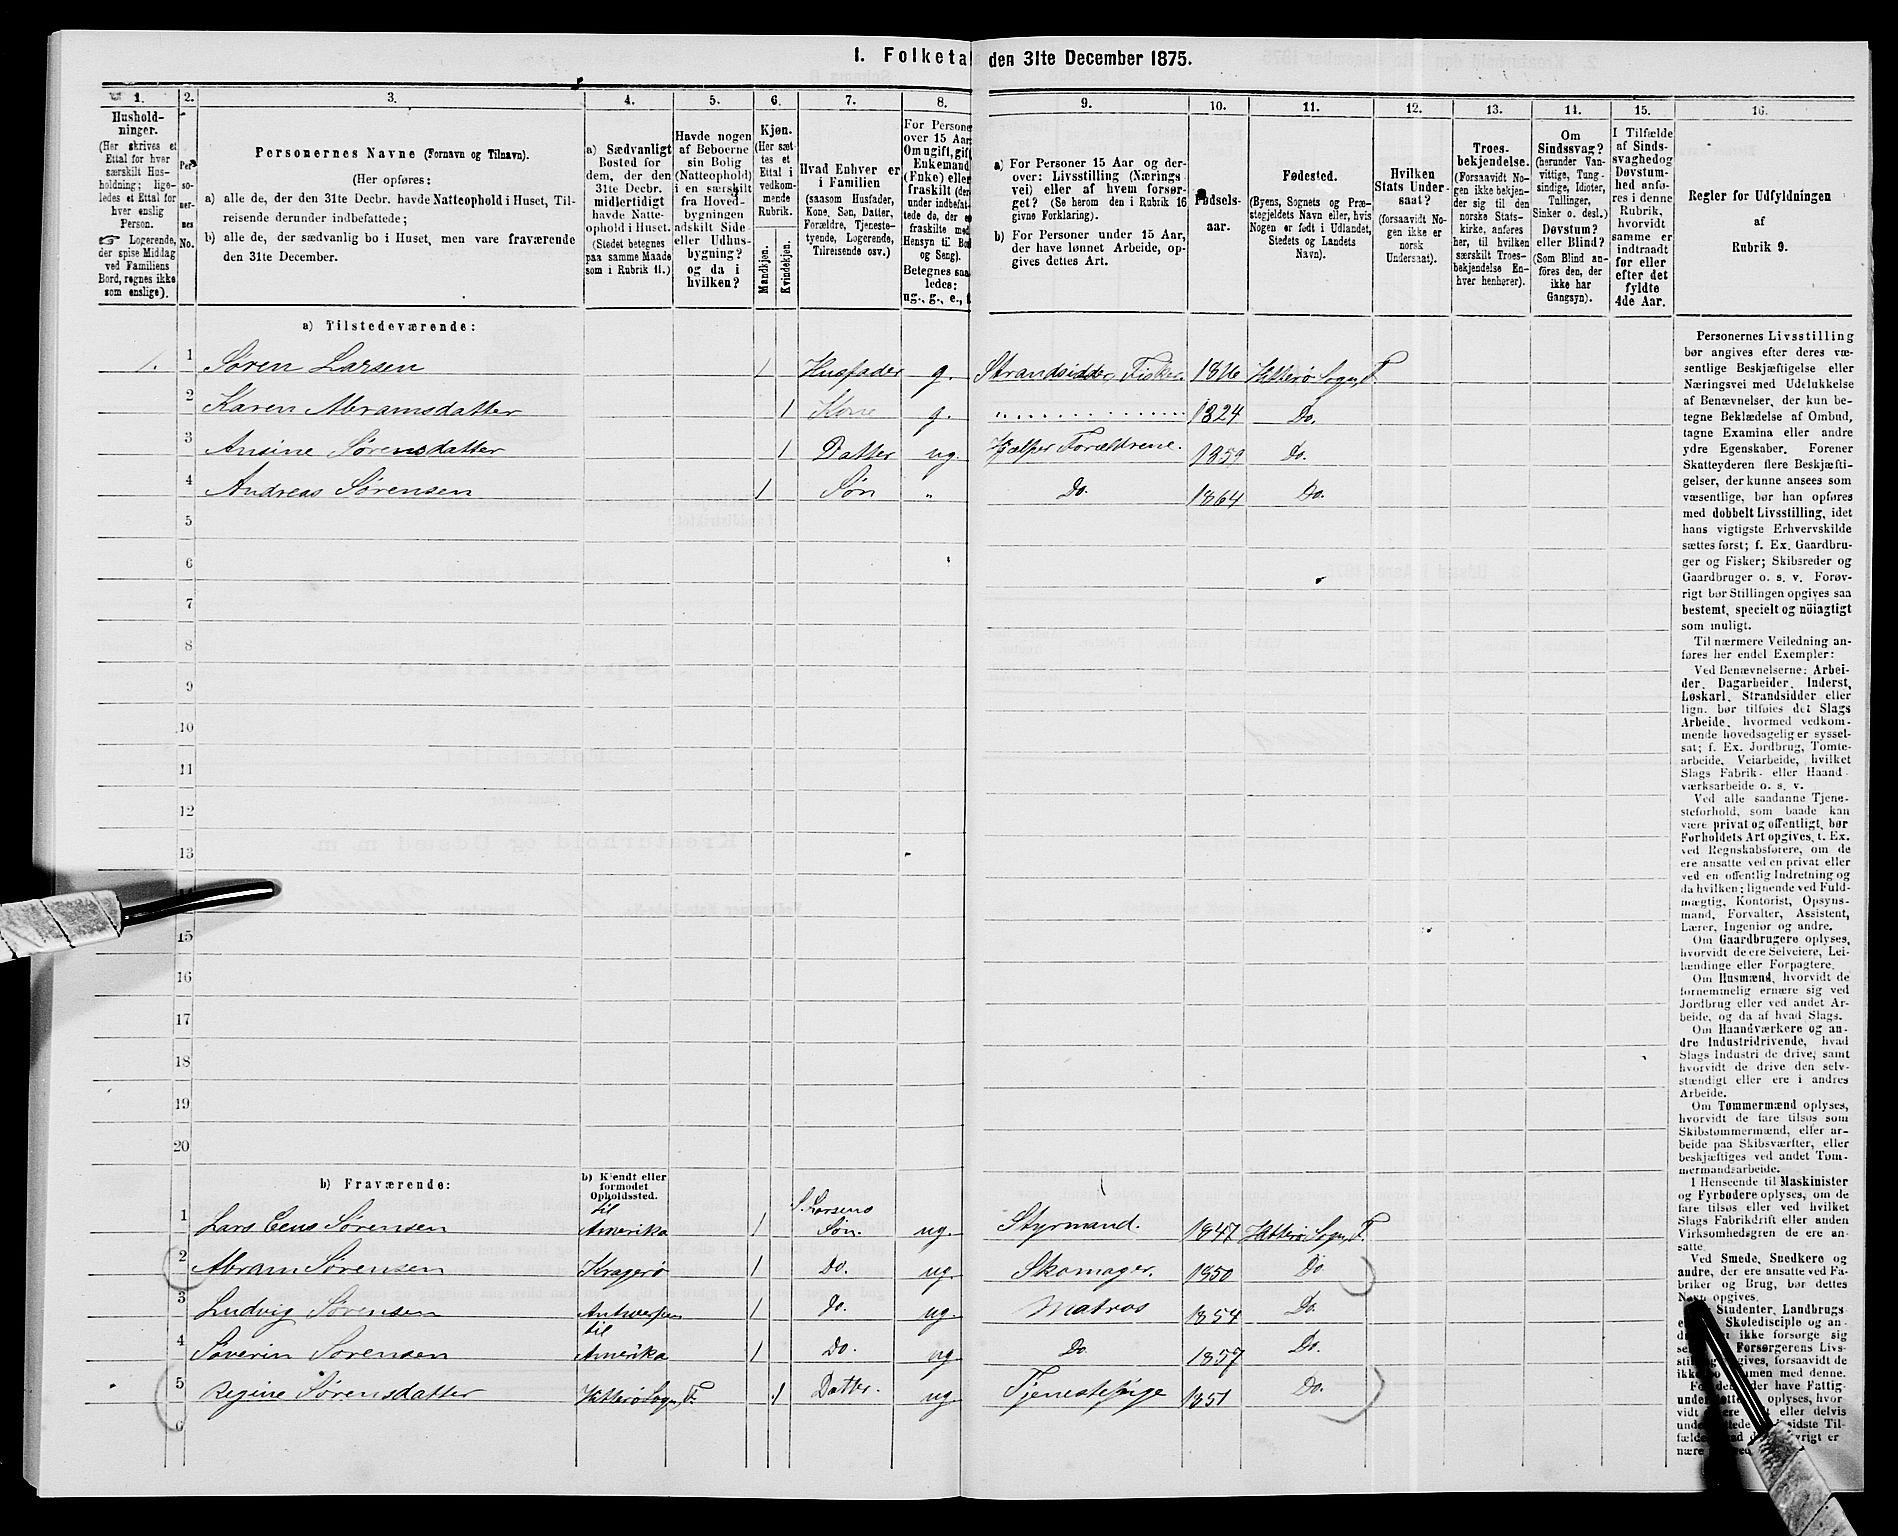 1. Folketal den 31te December 1875.
1. 2. 3. 4. 5. 6. 7. 8. 9. 10. 11. 12. 13. 14. 15. 16.
Hushold-
ninger.
(Her skrives et
Ettal for hver
særskilt Hus-
holdning; lige-
ledes et Ettal for
hver enslig
Person.
☞ Logerende,
der spise Middag
ved Familiens
Bord, regnes ikke
som enslige).
Per-
so-
ner-
nes
No.
Personernes Navne (Fornavn og Tilnavn).
(Her opføres:
a) alle de, der den 31te Decbr. havde Natteophold i Huset, Til-
reisende derunder indbefattede;
b) alle de, der sædvanlig bo i Huset, men vare fraværende
den 31te December.
a) Sædvanligt
Bosted for
dem, der den
31te Decbr.
midlertidigt
havde Natte-
ophold i Huset.
(Stedet betegnes
paa samme Maade
som i Rubrik 11.)
Havde nogen
af Beboerne
sin Bolig
(Natteophold)
i en særskilt
fra Hoved-
bygningen
adskilt Side-
eller Udhus-
bygning?
og da i
hvilken?
Kjøn.
(Her sæt-
tes et
Ettal i
vedkom-
mende
Rubrik.
Mandkjøn.
Kvindekjøn.
Hvad Enhver er
i Familien
(saasom Husfader,
Kone, Søn, Datter,
Forældre, Tjeneste-
tyende, Logerende,
Tilreisende osv.)
For Persone
over 15 Aar
Om ugift, gift,
Enkemand
(Enke) eller
fraskilt (der-
under indbefat-
tede de, der er
fraskilte med
Hensyn til Bo
og Seng).
Betegnes saa-
ledes:
ug., g., e., f
a) For Personer 15 Aar og der-
over: Livsstilling (Nærings-
vei) eller af hvem forsør-
get? (Se herom den i Rubrik 16
givne Forklaring).
b) For Personer under 15 Aar,
der have lønnet Arbeide, op-
gives dettes Art.
Fødsels-
aar.
Fødested.
(Byens, Sognets og Præ-
stegjeldets Navn eller, hvis
Nogen er født i Udlandet,
Stedets og Landets
Navn).
Hvilken
Stats Under-
saat?
(forsaavidt No-
gen ikke er
norsk
Undersaat).
Troes-
bekjendelse.
(Forsaavidt No-
gen ikke bekjen-
der sig til den
norske Stats-
kirke, anføres
her, til hvilken
særskilt Troes-
bekjendelse En-
hver henhører).
Om
Sindssvag?
(herunder Van-
vittige, Tung-
sindige, Idioter,
Tullinger,
Sinker o. desl.)
Døvstum?
eller Blind?
(Som Blind an-
føres den, der
ikke har
Gangsyn).
I Tilfælde
af Sinds-
svaghedog
Døvstum-
hed anfø-
res i denne
Rubrik,
hvorvidt
samme er
indtraadt
før eller
efter det
fyldte
4de Aar.
Regler for Udfyldningen
af
Rubrik 9.
a) Tilstedeværende:
1. 1 Søren Larsen 1 Husfader g. Strandsidder, Fisker. 1826 Hitterø Sogn, F.
2 Karen Abramsdatter 1 Kone g. 1824 Do.
3 Ansine Sørensdatter 1 Datter ug. Hjælper Forældrene. 1859 Do.
4 Andreas Sørensen 1 Søn " Do. 1864 Do.
5
6
7
8
9
10
11
12
13
15
16
17
18
19
20
b) Fraværende:
b) Kjendt eller
formodet
Opholdssted.
1 Lars Sørensen til Amerika 1 S. Larsens Søn. ug. Styrmand. 1847 Hitterø Sogn, F.
2 Abram Sørensen Kragerø 1 Do. ug. Skomager. 1850 Do.
3 Ludvig Sørensen Antwerpen 1 Do. ug. Matros 1854 Do.
4 Saverin Sørensen til Amerika 1 Do. ug Do. 1857 Do.
5 Regine Sørensdatter Hitterø Sogn, F. 1 Datter. ug. Tjenestepige 1851 Do.
6
Personernes Livsstilling
bør angives efter deres væ-
sentlige Beskjæftigelse eller
Næringsvei med Udelukkelse
af Benævnelser, der kun be-
tegne Beklædelse af Ombud,
tagne Examina eller andre
ydre Egenskaber. Forener
Skatteyderen flere Beskjæfti-
gelser, der kunne ansees som
væsentlige, bør han opføres
med dobbelt Livsstilling, idet
hans vigtigste Erhvervskilde
sættes først; f. Ex. Gaardbru-
ger og Fisker; Skibsreder og
Gaardbruger o. s. v. Forøv-
rigt bør Stillingen opgives saa
bestemt, specielt og nöiagtigt
som muligt.
Til nærmere Veiledning an-
føres her endel Exempler:
Ved Benævnelserne: Arbei-
der, Dagarbeider, Inderst,
Løskarl, Strandsidder eller
lign. bør tilføies det Slags
Arbeide, hvormed vedkom-
mende hovedsagelig er syssel-
sat; f. Ex. Jordbrug, Tomte-
arbeide, Veiarbeide, hvilket
Slags Fabrik- eller Haand-
værksarbeide o. s. v.
Ved alle saadanne Tjene-
steforhold, som baade kan
være privat og offentligt, bør
Forholdets Art opgives, t. Ex.
ved Regnskabsførere, om de
ere ansatte ved en privat eller
ved en offentlig Indretning og
da hvilken; lignende ved Fuld-
mægtig, Kontorist, Opsyns-
mand, Forvalter, Assistent,
Lærer, Ingeniør og andre.
Om Gaardbrugere oplyses,
hvorvidt de ere Selveiere, Lei-
lændinge eller Forpagtere.
Om Husmænd, hvorvidt de
fornemmelig ernære sig ved
Jordbrug eller ved andet Ar-
beide, og da af hvad Slags.
Om Haandværkere og an-
dre Industridrivende, hvad
Slags Industri de drive, samt
hvorvidt de drive den selv-
stændigt eller ere i andres
Arbeide.
Om Tømmermænd oplyses,
hvorvidt de fare tilsøs som
Skibstømmermænd, eller ar-
beide paa Skibsværfter, eller
beskjæftiges ved andet Tøm-
mermandsarbeide.
I Henseende til Maskinister
og Fyrbødere oplyses, om de
fare tilsøs eller ved hvilket
Slags Fabrikdrift eller anden
Virksomhedsgren de ere an-
satte.
Ved Smede, Snedkere og
andre, der ere ansatte ved Fa-
briker og Brug, bør dettes
Navn opgives.
Studenter, Landbrugs
Skoledisciple og an-
ikke forsørge sig
Forsørgerens Livs-
gives, forsaavidt de
ikke bo men med denne.
der have Fattig-
oplyses, hvor-
eller delvis
sidste Til-
vrigt er